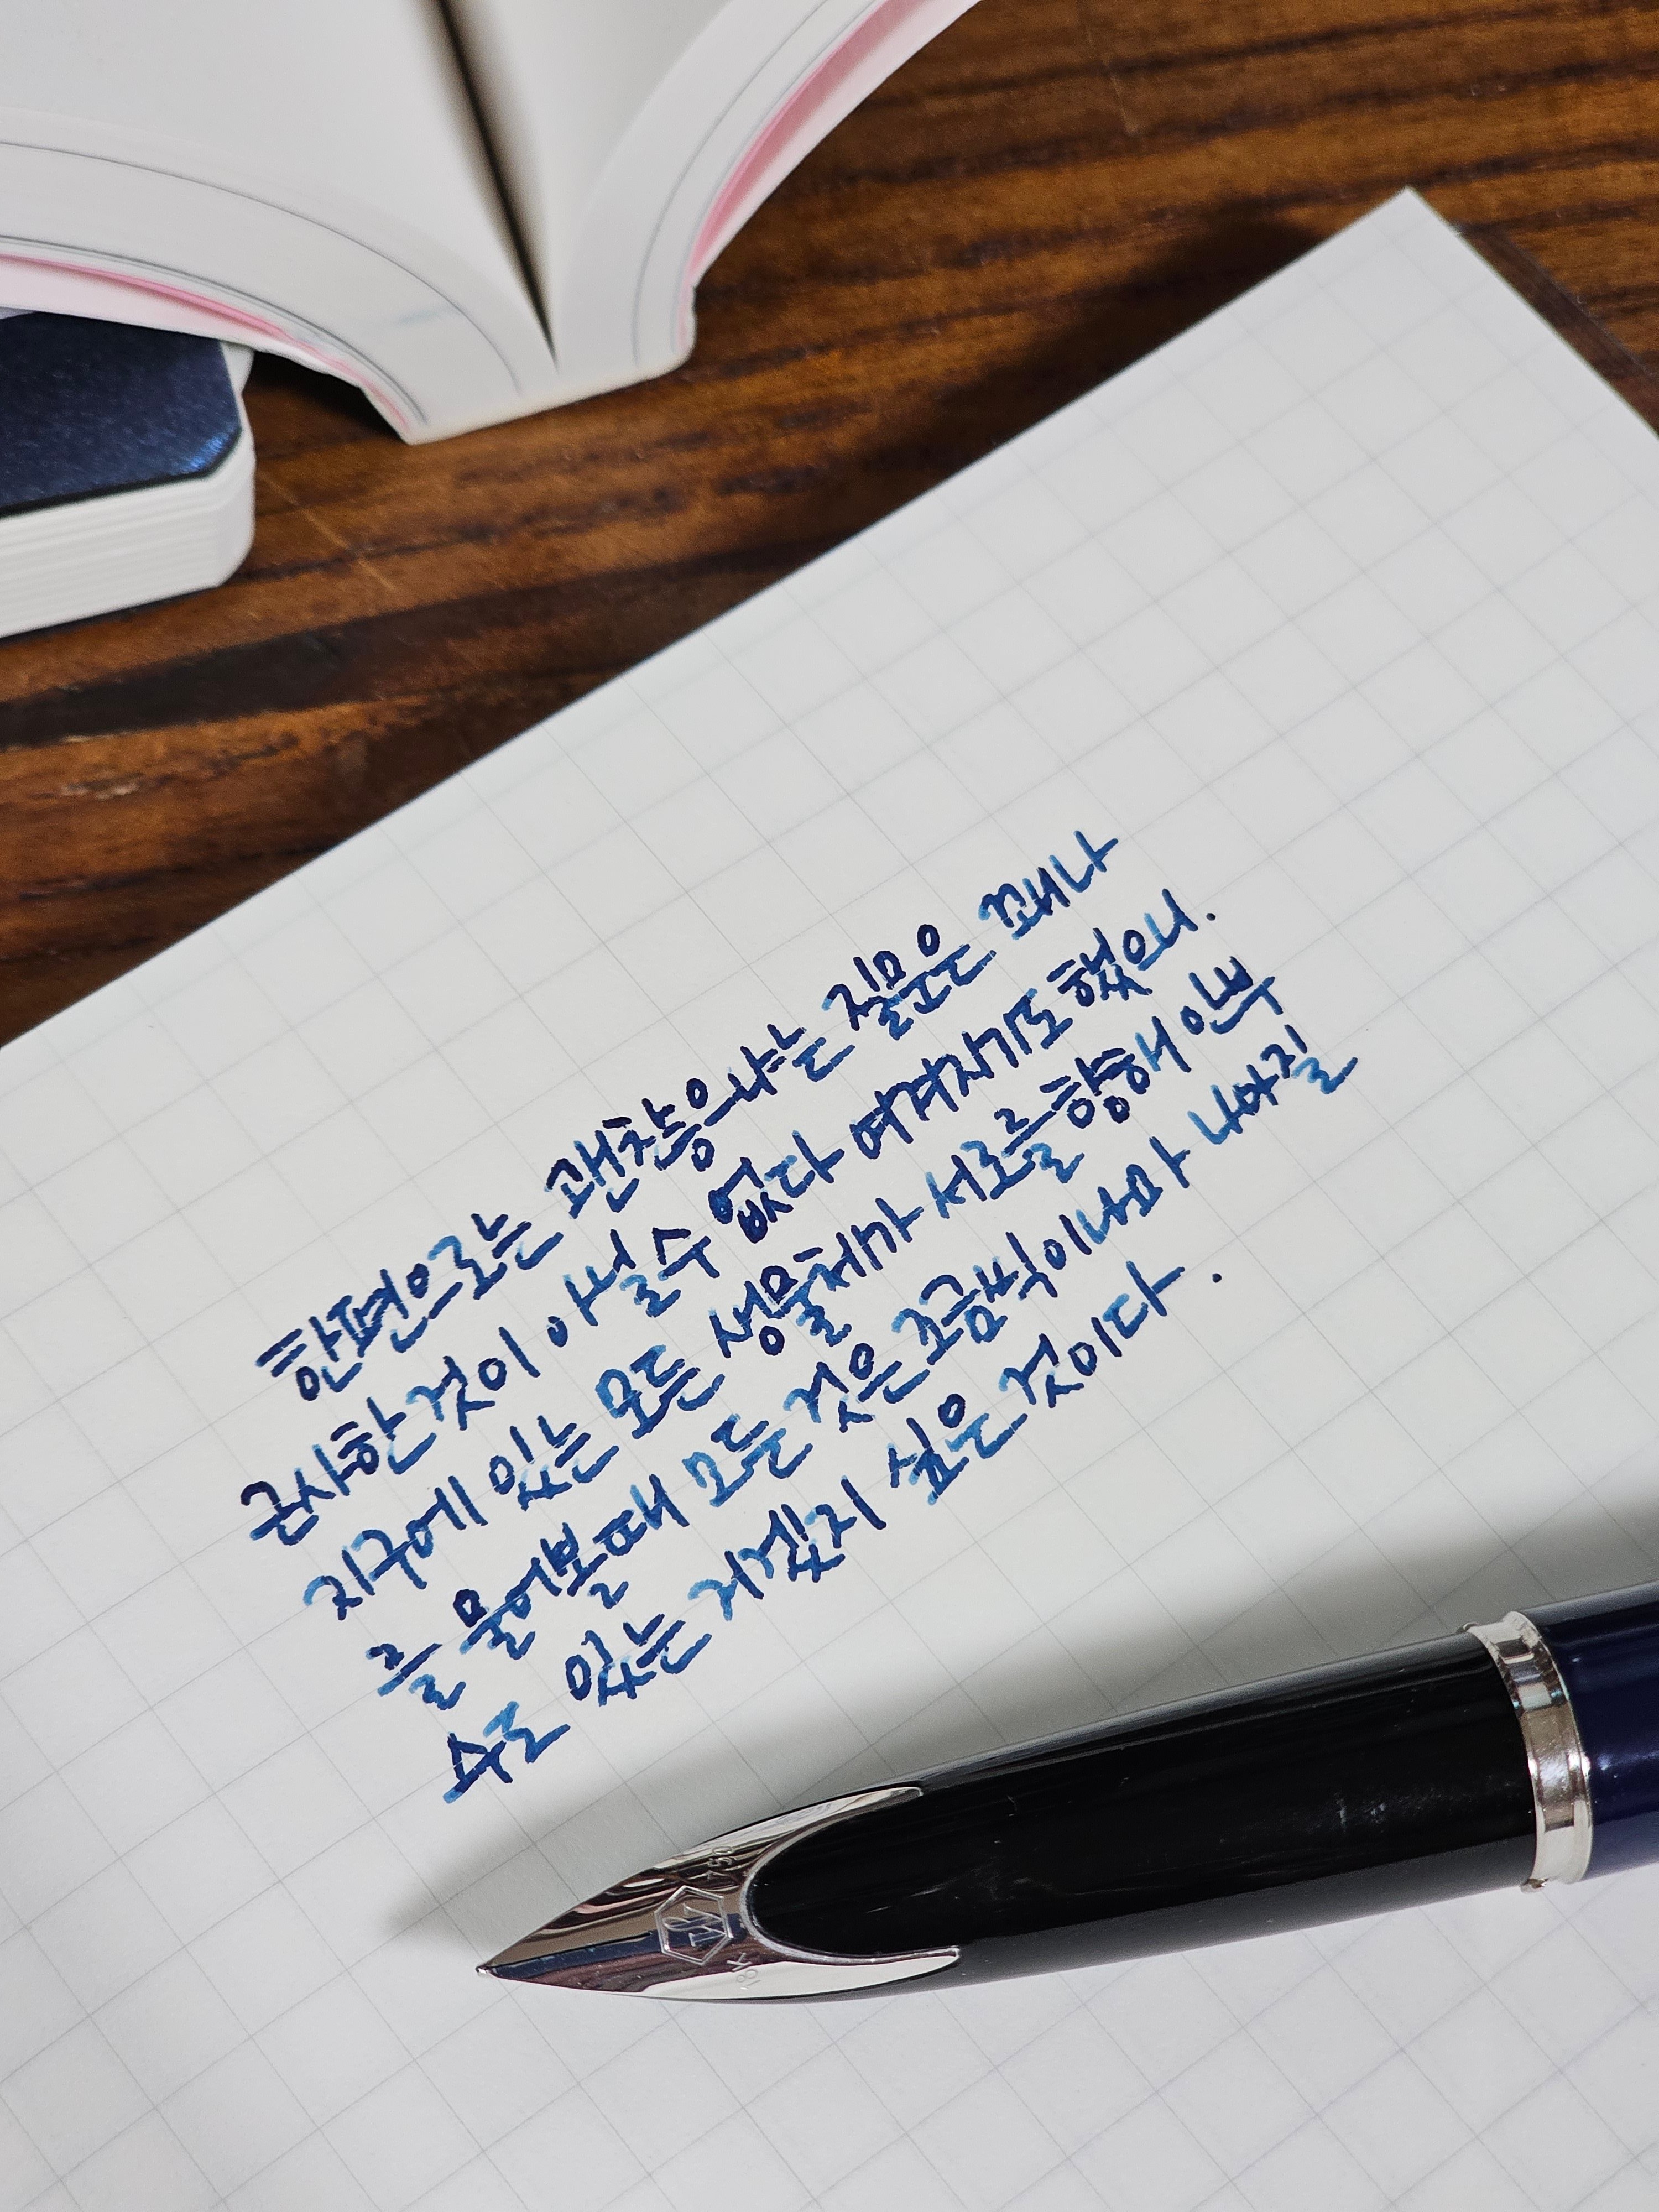 한편으로는 괜찮으냐는 질문은 꽤나
근사한 것이 아닐 수 없다 여겨지기도 했으니.
지구에 있는 모든 생물체가 서로를 향해 안부
를 물어볼 때 모든 것은 조금씩이나마 나아질
수도 있는 거겠지 싶은 것이다.
750
18K